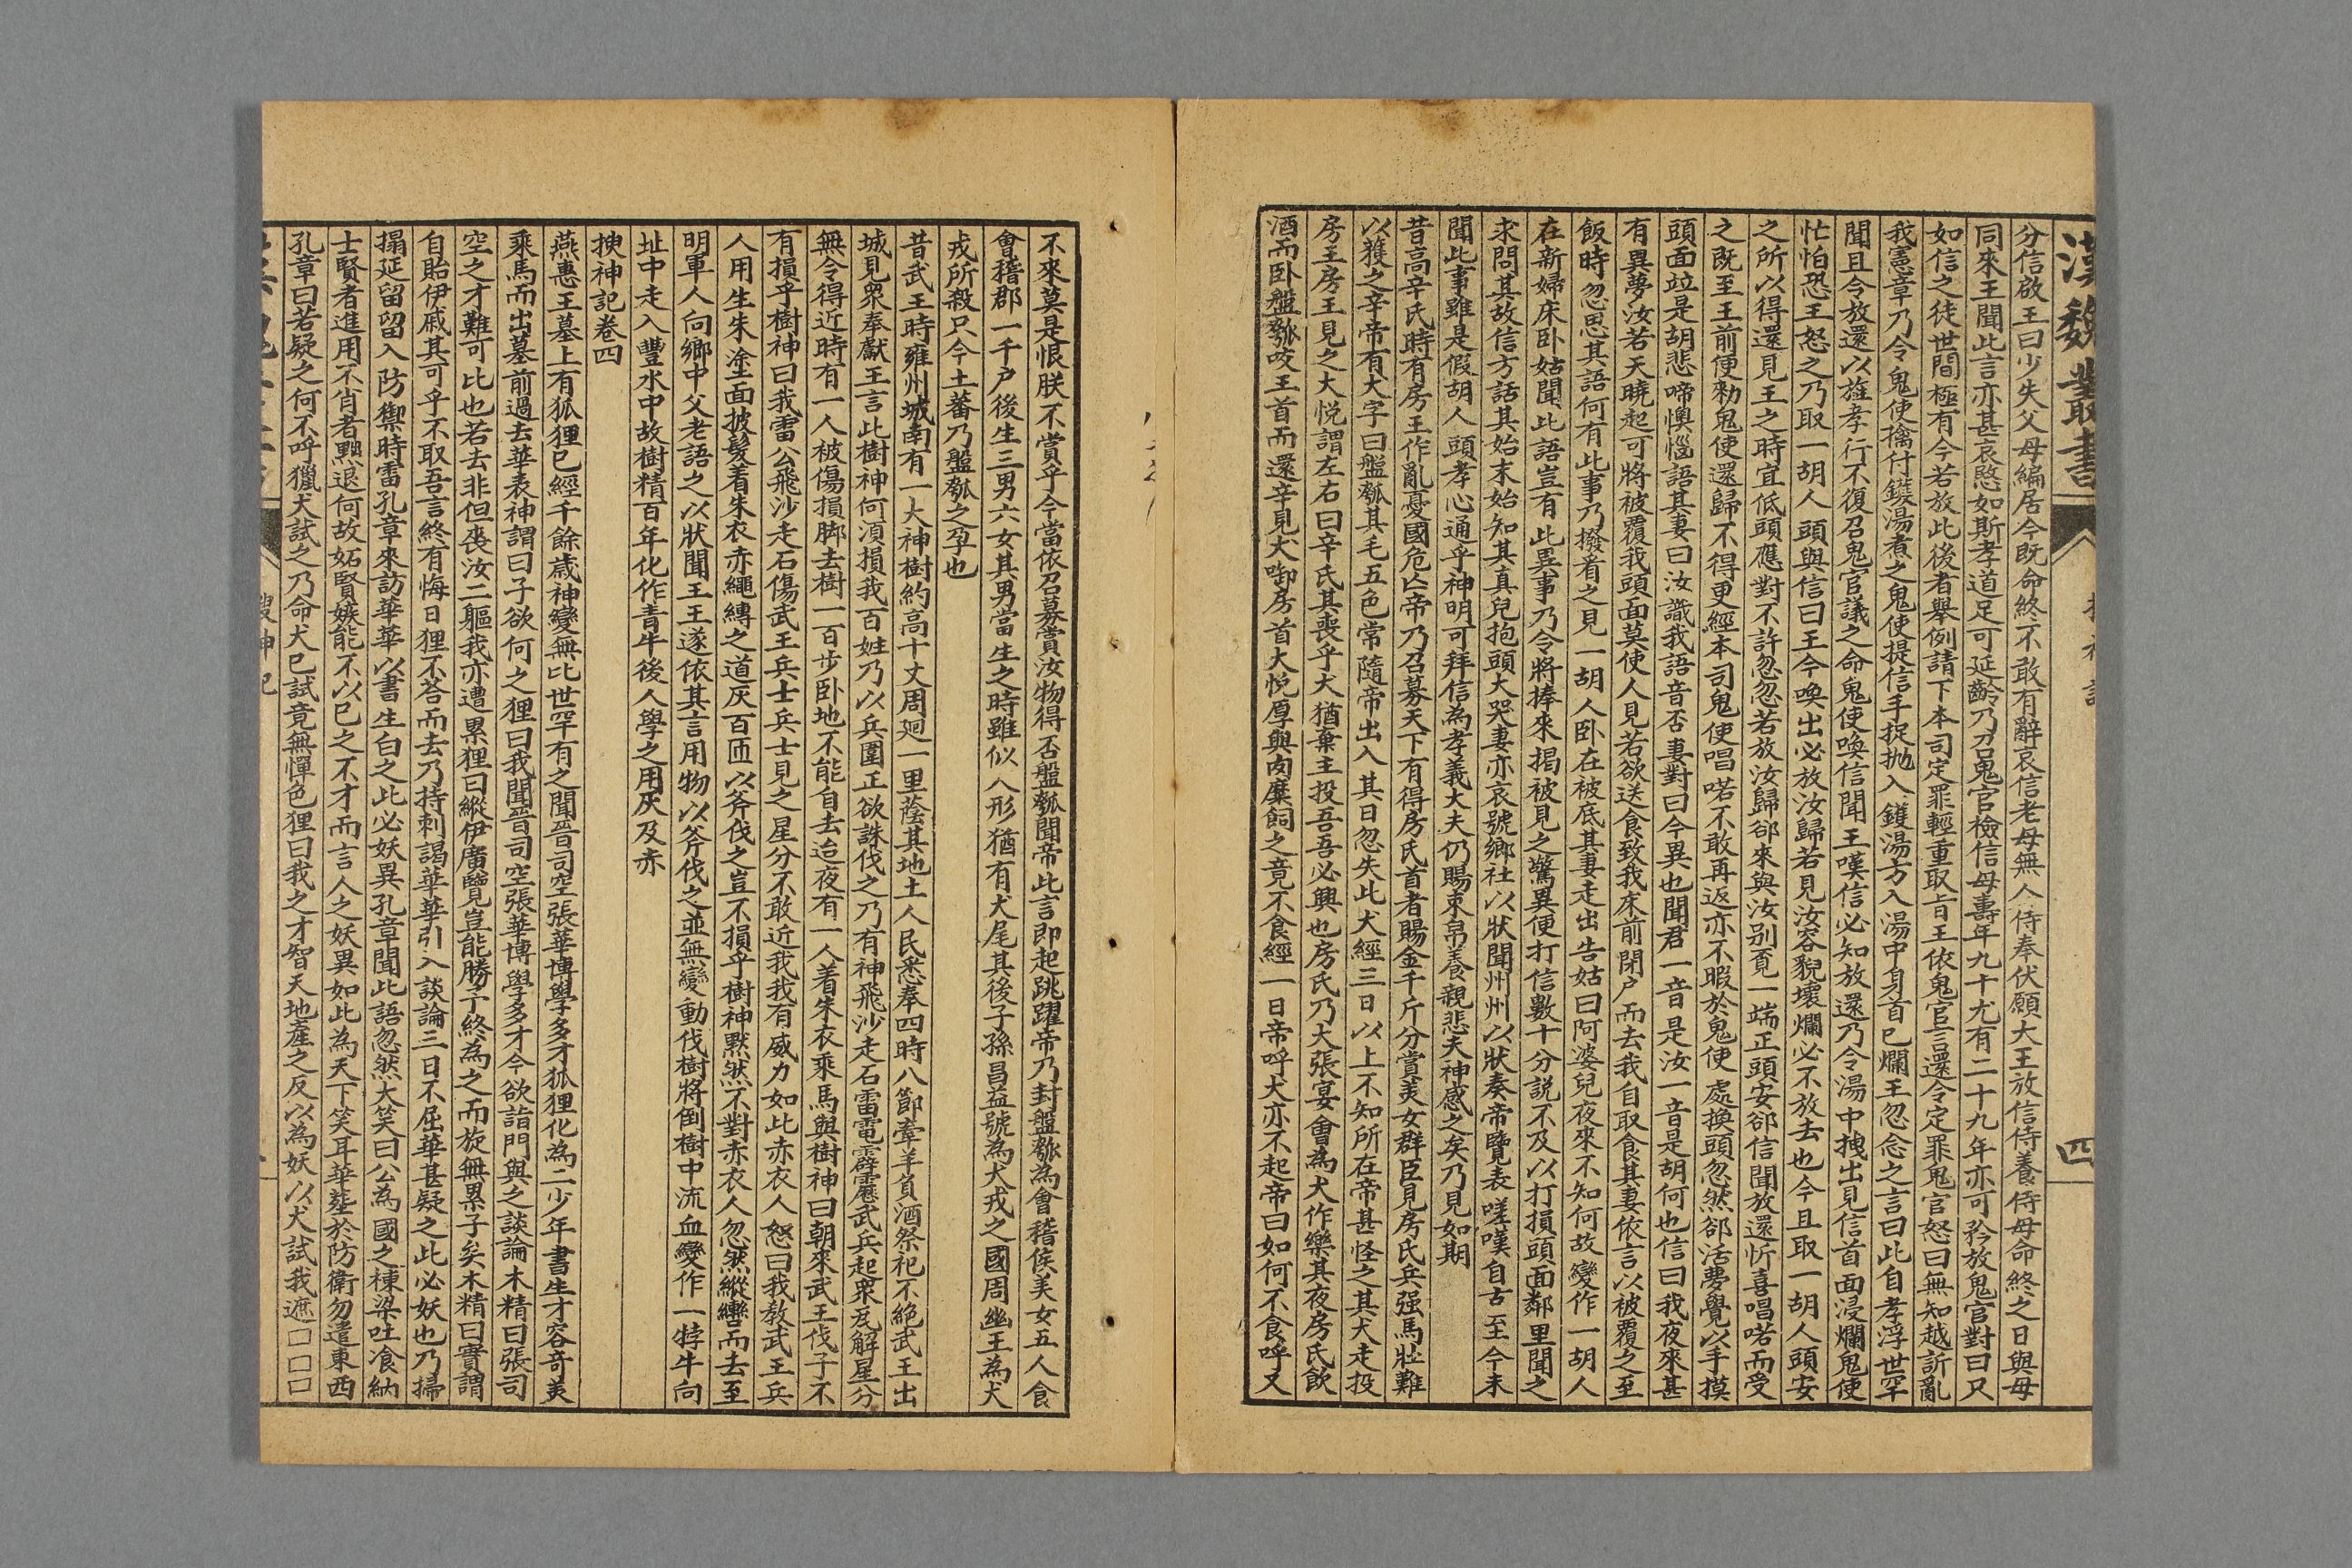 漢魏叢書
搜神記
四
分信啟王曰少失父母編居今既命終不敢有辭哀信老母無人侍奉伏願大王放信侍養侍母命終之日與母
同來王聞此言亦甚哀愍如斯孝道足可延齡乃召鬼官檢信母壽年九十尢有二十九年亦可矜放鬼官對曰只
如信之徒世間極有今若放此後者舉例請下本司定罪輕重取旨王依鬼官言還令定罪鬼官怒曰無知越訴亂
我憲章乃令鬼使擒付鑊湯煮之鬼使提信手捉抛入鑊湯方入湯中身首已爛王忽念之言曰此自孝浮世罕
聞且今放還以旌孝行不復召鬼官議之命鬼使喚信聞王嘆信必知放還乃令湯中拽出見信首面浸爛鬼使
忙怕恐王怒之乃取一胡人頭與信曰王今喚出必放汝歸若見汝容貌壞爛必不放去也今且取一胡人頭安
之所以得還見王之時宜低頭應對不許忽忽若放汝歸郤來與汝别覔一端正頭安郤信聞放還忻喜唱喏而受
之既至王前便勑鬼使還歸不得更經本司鬼使唱喏不敢再返亦不暇於鬼使處換頭忽然郤活夢覺以手摸
頭面竝是胡悲啼懊惱語其妻曰汝識我語音否妻對曰今異也聞君一音是汝一音是胡何也信曰我夜來甚
有異夢汝若天曉起可將被覆我頭面莫使人見若欲送食致我床前閉户而去我自取食其妻依言以被覆之至
飯時忽思其語何有此事乃撥看之見一胡人卧在被底其妻走出告姑曰阿婆兒夜來不知何故變作一胡人
在新婦床卧姑聞此語豈有此異事乃令將捧來揭被見之驚異便打信數十分説不及以打損頭面鄰里聞之
求問其故信方話其始末始知其真兒抱頭大哭妻亦哀號鄉社以狀聞州州以狀奏帝覽表嗟嘆自古至今未
聞此事雖是假胡人頭孝心通乎神明可拜信為孝義大夫仍賜束帛養親悲夫神感之矣乃見如期
昔高辛氏時有房王作亂憂國危亾帝乃召募天下有得房氏首者賜金千斤分賞美女群臣見房氏兵强馬壯難
以獲之辛帝有犬字曰盤瓠其毛五色常隨帝出入其日忽失此犬經三日以上不知所在帝甚怪之其犬走投
房王房王見之大悦謂左右曰辛氏其喪乎犬猶棄主投吾吾必興也房氏乃大張宴會為犬作樂其夜房氏飲
酒而卧盤瓠咬王首而還辛見犬啣房首大悦厚與肉糜飼之竟不食經一日帝呼犬亦不起帝曰如何不食呼又
不來莫是恨朕不賞乎今當依召募賞汝物得否盤瓠聞帝此言即起跳躍帝乃封盤瓠為會稽侯美女五人食
會稽郡一千户後生三男六女其男當生之時雖似人形猶有犬尾其後子孫昌益號為犬戎之國周幽王為犬
戎所殺只今土蕃乃盤瓠之孕也
昔武王時雍州城南有一大神樹約高十丈周廻一里蔭其地土人民悉奉四時八節牽羊負酒祭祀不絶武王出
城見衆奉獻王言此樹神何湏損我百姓乃以兵圍正欲誅伐之乃有神飛沙走石雷電霹靂武兵起衆瓦解星分
無令得近時有一人被傷損脚去樹一百步卧地不能自去迨夜有一人着朱衣乘馬與樹神曰朝來武王伐子不
有損乎樹神曰我雷公飛沙走石傷武王兵士兵士見之星分不敢近我我有威力如此赤衣人怒曰我教武王兵
人用生朱塗面披髮着朱衣赤繩縛之道灰百匝以斧伐之豈不損乎樹神黙然不對赤衣人忽然縱轡而去至
明軍人向鄉中父老語之以狀聞王王遂依其言用物以斧伐之並無變動伐樹將倒樹中流血變作一牸牛向
址中走入豐水中故樹精百年化作青牛後人學之用灰及赤
搜神記卷四
燕惠王墓上有狐狸已經千餘歲神變無比世罕有之聞晉司空張華博學多才狐狸化為二少年書生才容竒美
乘馬而出墓前過去華表神謂曰子欲何之狸曰我聞晉司空張華博學多才今欲詣門與之談論木精曰張司
空之才難可比也若去非但喪汝二軀我亦遭累狸曰縱伊廣覽豈能勝予終為之而旋無累子矣木精曰實謂
自貽伊戚其可乎不取吾言終有悔日狸不荅而去乃持刺謁華華引入談論三日不屈華甚疑之此必妖也乃掃
搨延留留入防禦時雷孔章來訪華華以書生白之此必妖異孔章聞此語忽然大笑曰公為國之棟梁吐飡納
士賢者進用不肖者黜退何故妬賢嫉能不以巳之不才而言人之妖異如此為天下笑耳華莝於防衛勿遣東西
孔章曰若疑之何不呼獵犬試之乃命犬已試竟無憚色狸曰我之才智天地產之反以為妖以犬試我遮口口口
搜神記